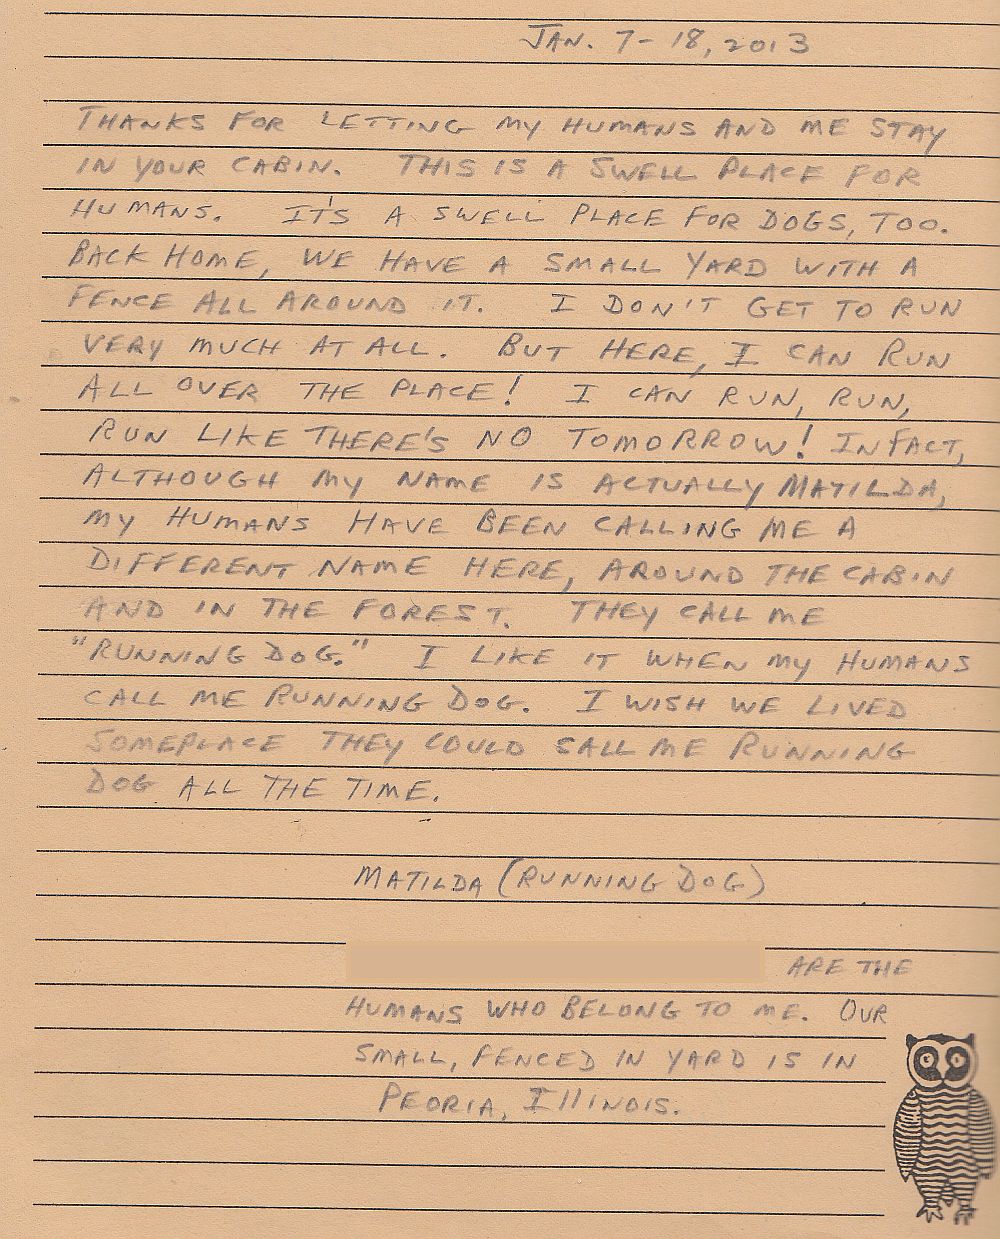 JAN. 7-18, 2013
THANKS FOR LETTING MY HUMANS AND ME STAY
IN YOUR CABIN. THIS IS A SWELL PLACE FOR
HUMANS. IT'S A SWELL PLACE FOR DOGS, TOO.
BACK HOME, WE HAVE A SMALL YARD WITH A
FENCE ALL AROUND IT. I DON'T GET TO RUN
VERY MUCH AT ALL. BUT HERE, I CAN RUN
ALL OVER THE PLACE! I CAN RUN, RUN,
RUN LIKE THERE'S NO TOMORROW! IN FACT,
ALTHOUGH MY NAME IS ACTUALLY MATILDA,
MY HUMANS HAVE BEEN CALLING ME A
DIFFERENT NAME HERE, AROUND THE CABIN
AND IN THE FOREST. THEY CALL ME
"RUNNING DOG." I LIKE IT WHEN MY HUMANS
CALL ME RUNNING DOG. I WISH WE LIVED
SOMEPLACE THEY COULD CALL ME RUNNING
DOG ALL THE TIME.
MATILDA (RUNNING DOG)
ARE THE
HUMANS WHO BELONG TO ME. OUR
SMALL, FENCED IN YARD IS IN
PEORIA, ILLINOIS.